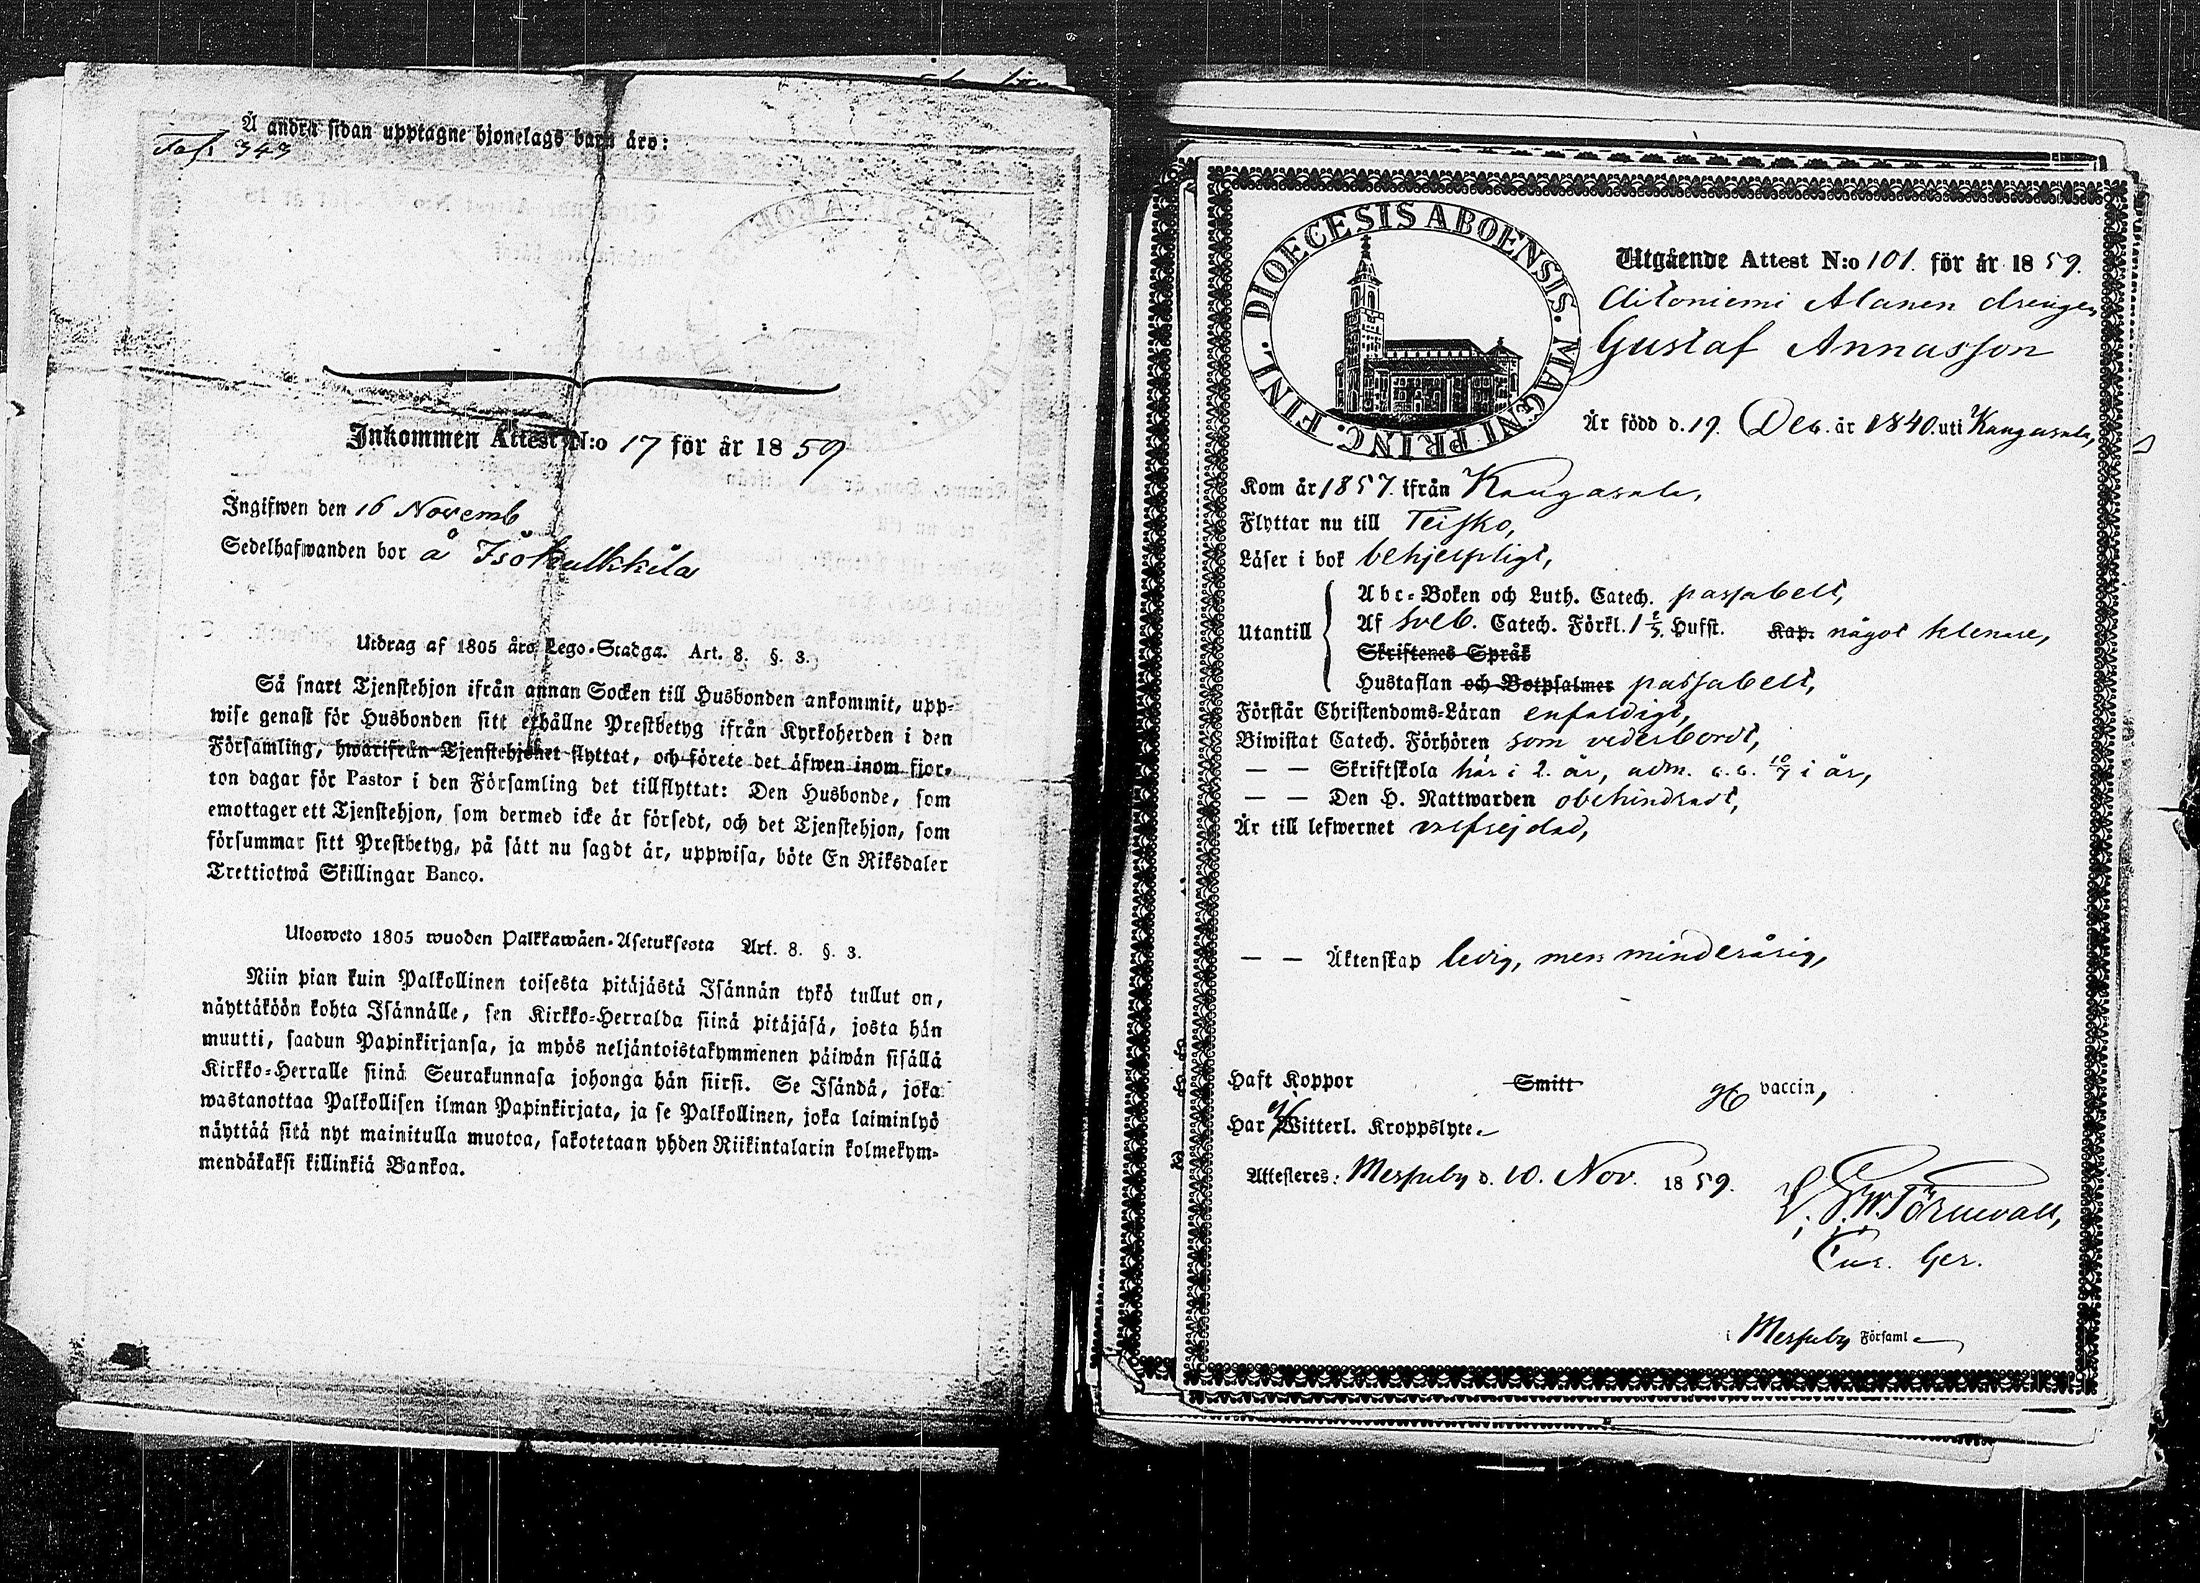 Å andra sidan upptagne hjonelags barn äro:
Fol. 343
Inkommen Attest N:o 17 för år 1859
Ingifwen den 16 Novemb.
Sedelhafwanden bor å Isokulkkila
Utdrag af 1805 års Lego-Stadga. Art. 8. §. 3.
Så snart Tjenstehjon ifrån annan Socken till Husbonden ankommit, upp-
wise genast för Husbonden sitt erhållne Prestbetyg ifrån Kyrkoherden i den
Församling, hwarifrån Tjenstehjonet flyttat, och förete det äfwen inom fjor-
ton dagar för Pastor i den Församling det tillflyttat: Den Husbonde, som
emottager ett Tjenstehjon, som dermed icke är försedt, och det Tjenstehjon, som
försummar sitt Prestbetyg, på sätt nu sagdt är, uppwisa, böte En Riksdaler
Trettiotwå Skillingar Banco.
Ulosweto 1805 wuoden Palkkawäen-Asetuksesta Art. 8. §. 3.
Niin pian kuin Palkollinen toisesta pitäjästä Isännän tykö tullut on,
näyttäköön kohta Isännälle, sen Kirkko-Herralda siinä pitäjäsä, josta hän
muutti, saadun Papinkirjansa, ja myös neljäntoistakymmenen päiwän sisällä
Kirkko-Herralle siinä Seurakunnasa johonga hän siirsi. Se Isändä, joka
wastanottaa Palkollisen ilman Papinkirjata, ja se Palkollinen, joka laiminlyö
näyttää sitä nyt mainitulla muotoa, sakotetaan yhden Riikintalarin kolmekym-
mendäkaksi killinkiä Bankoa.
DIOECESIS ABOENSIS. MAGNI PRINC. FINL.
Utgående Attest N:o 101. för år 1859.
Aitoniemi Alanen drengen
Gustaf Annasson
Är född d. 19. Dec. år 1840. uti Kangasala,
Kom år 1857. ifrån Kangasala,
Flyttar nu till Teisko,
Läser i bok behjelpligt,
Utantill
Abc-Boken och Luth. Catech. passabelt,
Af Sveb. Catech. Förkl. 1 2/5. Hufst. Kap. något klenare,
Skriftenes Språk
Hustaflan och Botpsalmer passabelt,
Förstår Christendoms-Läran enfaldigt,
Biwistat Catech. Förhören som vederbordt,
— — Skriftskola här i 2. år, adm. 10/7 i år,
— — Den H. Nattwarden obehindradt,
Är till lefwernet välfrejdad,
— — Äktenskap ledig, men minderårig,
Haft Koppor Smitt vaccin,
Har Witterl. Kroppslyte.
Attesteres: Messuby d. 10. Nov. 1859.
Törnwall,
Cur. Ger.
i Messuby Församl.